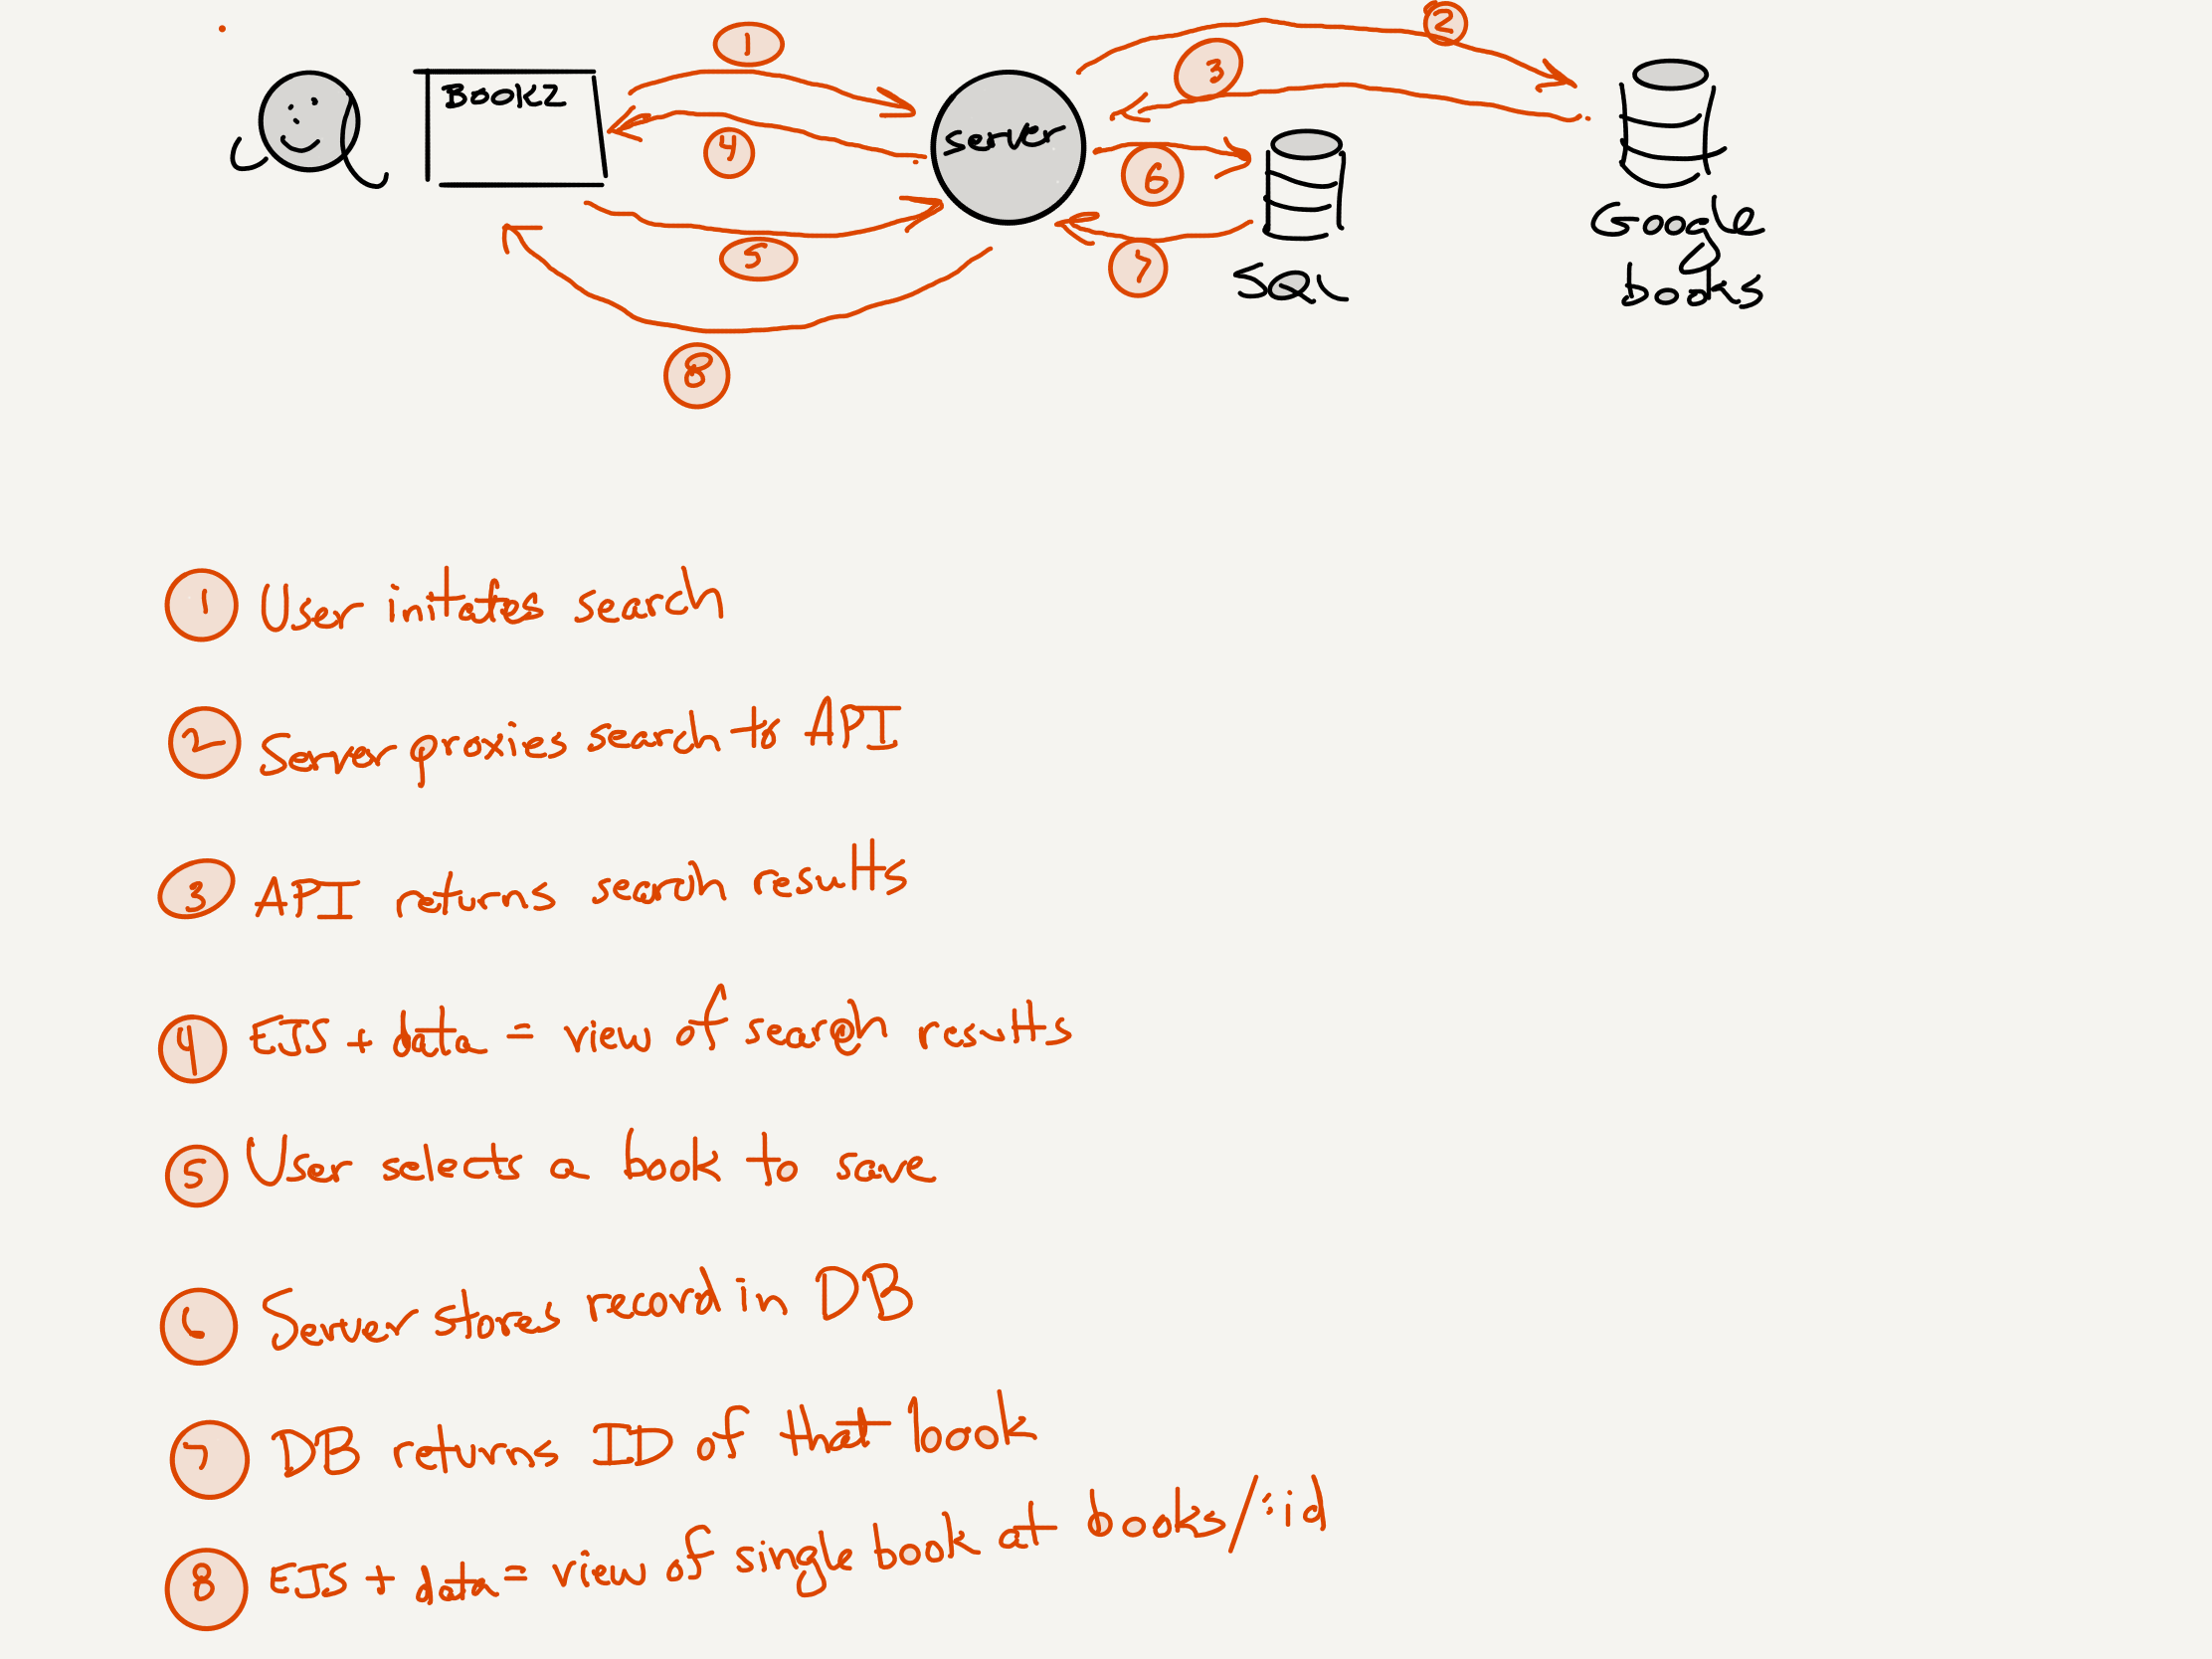 1
2
BOOKZ
3
Server
4
6
5
7
Google
SQL
books
8
1 User intates search
2 Server proxies search to API
3 API returns search results
4 EJS + data = view of search results
5 User selects a book to save
6 Server stores record in DB
7 DB returns ID of that book
8 EJS + data = view of single book at books/:id